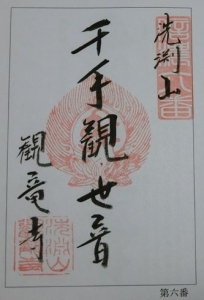 洗渕山
千手観世音
観竜寺
第六番